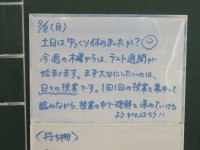 2/6 (月)
土日はゆっくり休めましたか?
今週の木曜からは、テスト週間が
始まります。まず大切にしたいのは、
日々の授業です。1回1回の授業を集中して
臨みながら、授業の中で理解を深めていける
ようがんばろう!!
(持ち物)